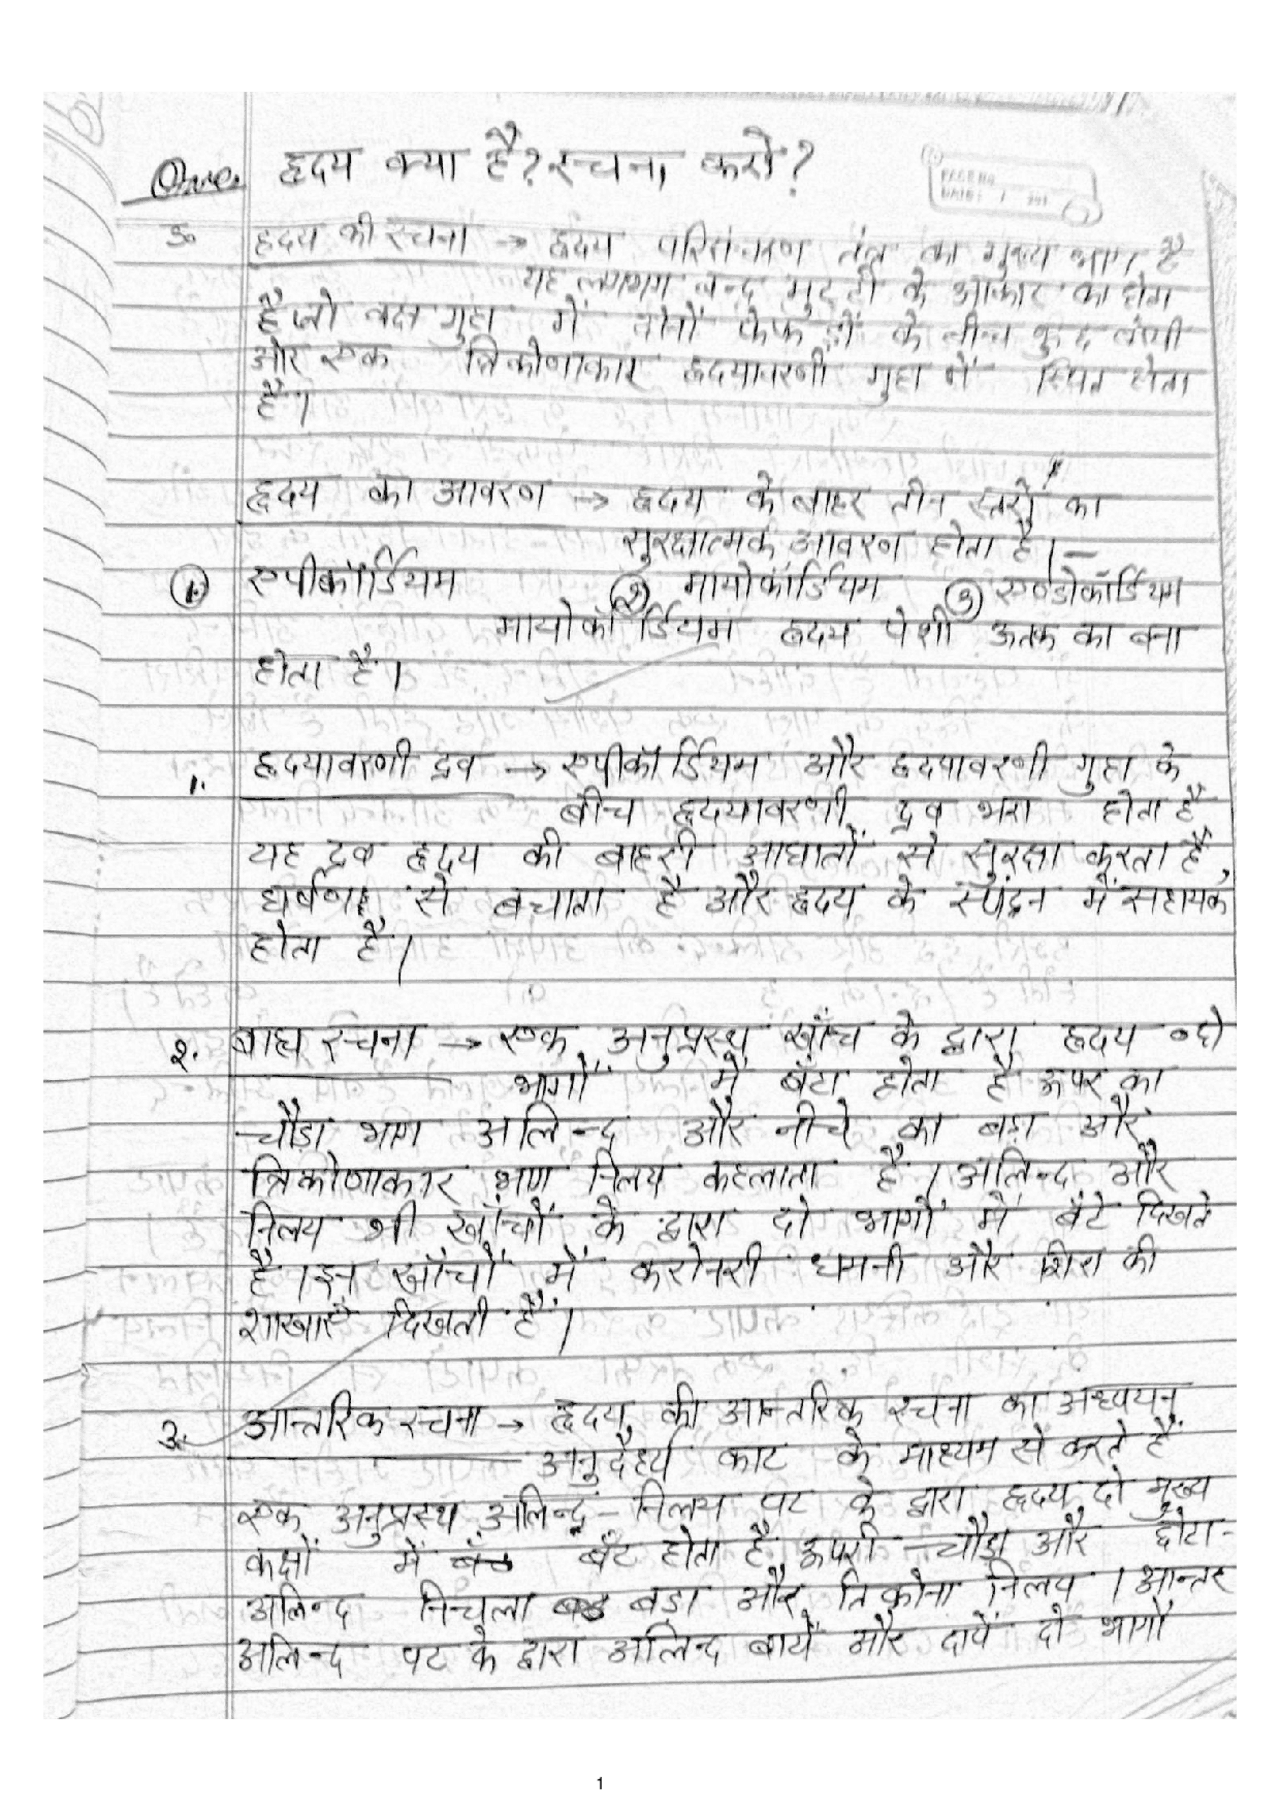 Ques. हृदय क्या है? रचना करो?
PAGE NO.
DATE
उ० हृदय की रचना → हृदय परिसंचरण तंत्र का मुख्य भाग है
यह लगभग बन्द मुट्ठी के आकार का होता
है जो वक्ष गुहा में दोनों फेफड़ों के बीच कुछ बायीं
ओर एक त्रिकोणाकार हृदयावरणी गुहा में स्थित होता
है।
हृदय का आवरण → हृदय के बाहर तीन स्तरों का
सुरक्षात्मक आवरण होता है।–
① एपीकॉर्डियम ② मायोकॉर्डियम ③ एण्डोकॉर्डियम
मायोकॉर्डियम हृदय पेशी ऊतक का बना
होता है।
1. हृदयावरणी द्रव → एपीकॉर्डियम और हृदयावरणी गुहा के
बीच हृदयावरणी द्रव भरा होता है
यह द्रव हृदय की बाहरी आघातों से सुरक्षा करता है,
घर्षण से बचाता है और हृदय के स्पंदन में सहायक
होता है।
२. बाह्य रचना → एक अनुप्रस्थ खाँच के द्वारा हृदय दो
भागों में बँटा होता है ऊपर का
चौड़ा भाग अलिन्द और नीचे का बड़ा और
त्रिकोणाकार भाग निलय कहलाता है। अलिन्द और
निलय भी खाँचों के द्वारा दो भागों में बँटे दिखते
है। इन खाँचों में करोनरी धमनी और शिरा की
शाखाऐं दिखती हैं।
३. आन्तरिक रचना → हृदय की आन्तरिक रचना का अध्ययन
अनुदैर्ध्य काट के माध्यम से करते हैं
एक अनुप्रस्थ अलिन्द – निलय पट के द्वारा हृदय दो मुख्य
कक्षों में बँट होता है ऊपरी चौड़ा और छोटा-
अलिन्द निचला बड़ा और तिकोना निलय । आन्तर
अलिन्द पट के द्वारा अलिन्द बायें और दायें दो भागों
1